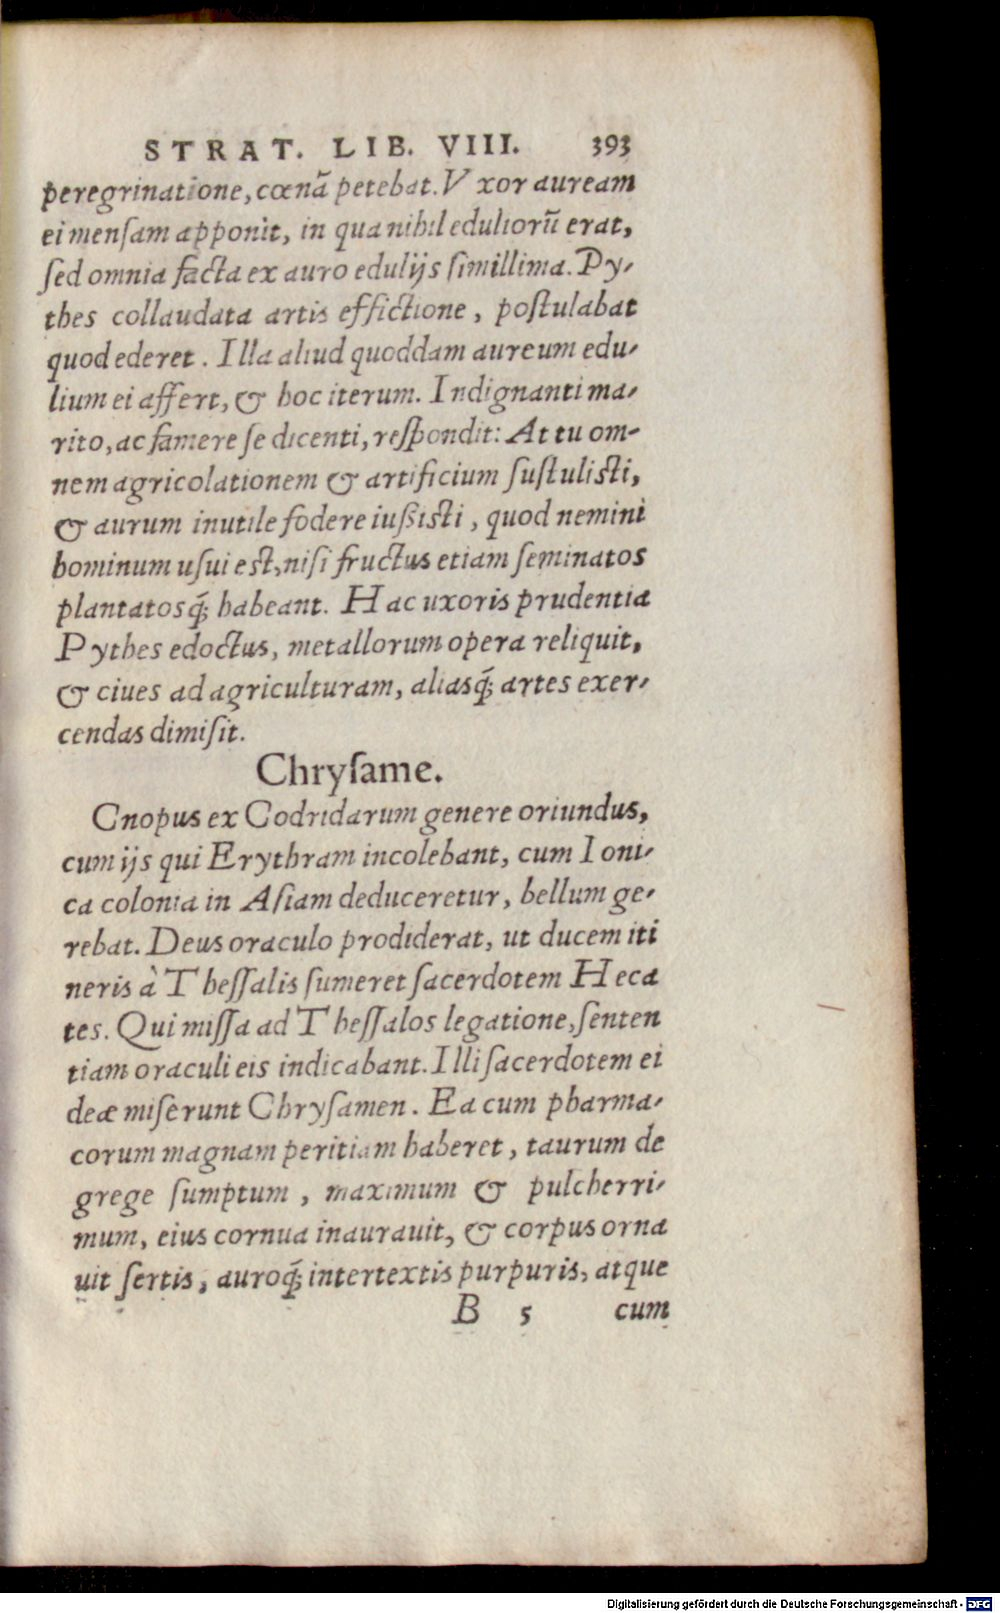 STRAT. LIB. VIII. 393
peregrinatione, cœnā petebat. Vxor auream
ei mensam apponit, in qua nihil eduliorū erat,
ſed omnia facta ex auro edulijs ſimillima. Py-
thes collaudata artis effictione, poſtulabat
quod ederet. Illa aliud quoddam aureum edu-
lium ei affert, & hoc iterum. Indignanti ma-
rito, ac famere ſe dicenti, reſpondit: At tu om-
nem agricolationem & artificium ſuſtulisti,
& aurum inutile fodere iußisti, quod nemini
hominum uſui eſt, niſi fructus etiam ſeminatos
plantatosq́; habeant. Hac uxoris prudentia
Pythes edoctus, metallorum opera reliquit,
& ciues ad agriculturam, aliasq́; artes exer-
cendas dimiſit.
Chryſame.
Cnopus ex Codridarum genere oriundus,
cum ijs qui Erythram incolebant, cum Ioni-
ca colonia in Aſiam deduceretur, bellum ge-
rebat. Deus oraculo prodiderat, ut ducem iti
neris à Theſſalis ſumeret ſacerdotem Heca
tes. Qui miſſa ad Theſſalos legatione, ſenten
tiam oraculi eis indicabant. Illi ſacerdotem ei
deæ miſerunt Chryſamen. Ea cum pharma-
corum magnam peritiam haberet, taurum de
grege ſumptum, maximum & pulcherri-
mum, eius cornua inaurauit, & corpus orna
uit ſertis, auroq́; intertextis purpuris, atque
B 5 cum
Digitalisierung gefördert durch die Deutsche Forschungsgemeinschaft - DFG